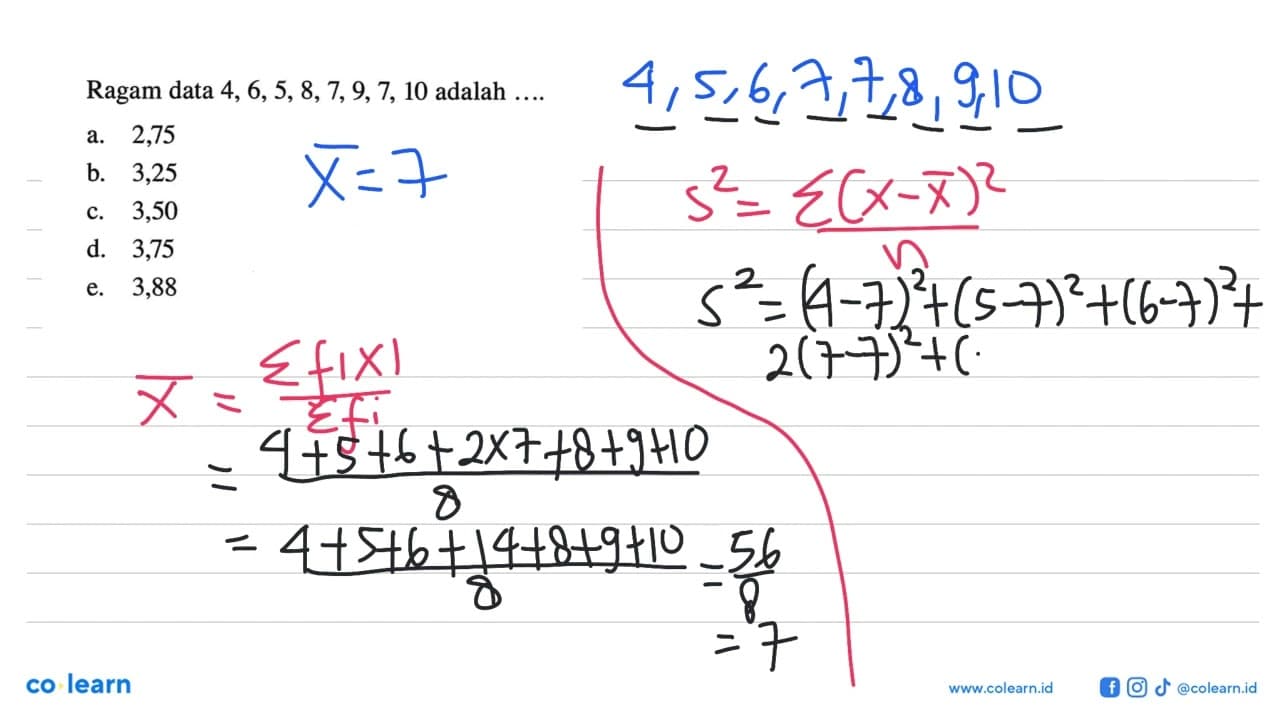 Ragam data 4, 6, 5, 8, 7, 9, 7, 10 adalah ....
a. 2,75
b. 3,25
c. 3,50
d. 3,75
e. 3,88
x̄ = 7
4, 5, 6, 7, 7, 8, 9, 10
x̄ = Σ fixi / Σ fi
= 4+5+6+2×7+8+9+10 / 8
= 4+5+6+14+8+9+10 / 8 = 56 / 8
= 7
s² = Σ(x-x̄)² / n
s² = (4-7)²+(5-7)²+(6-7)²+
2(7-7)²+(
co learn
www.colearn.id
@colearn.id